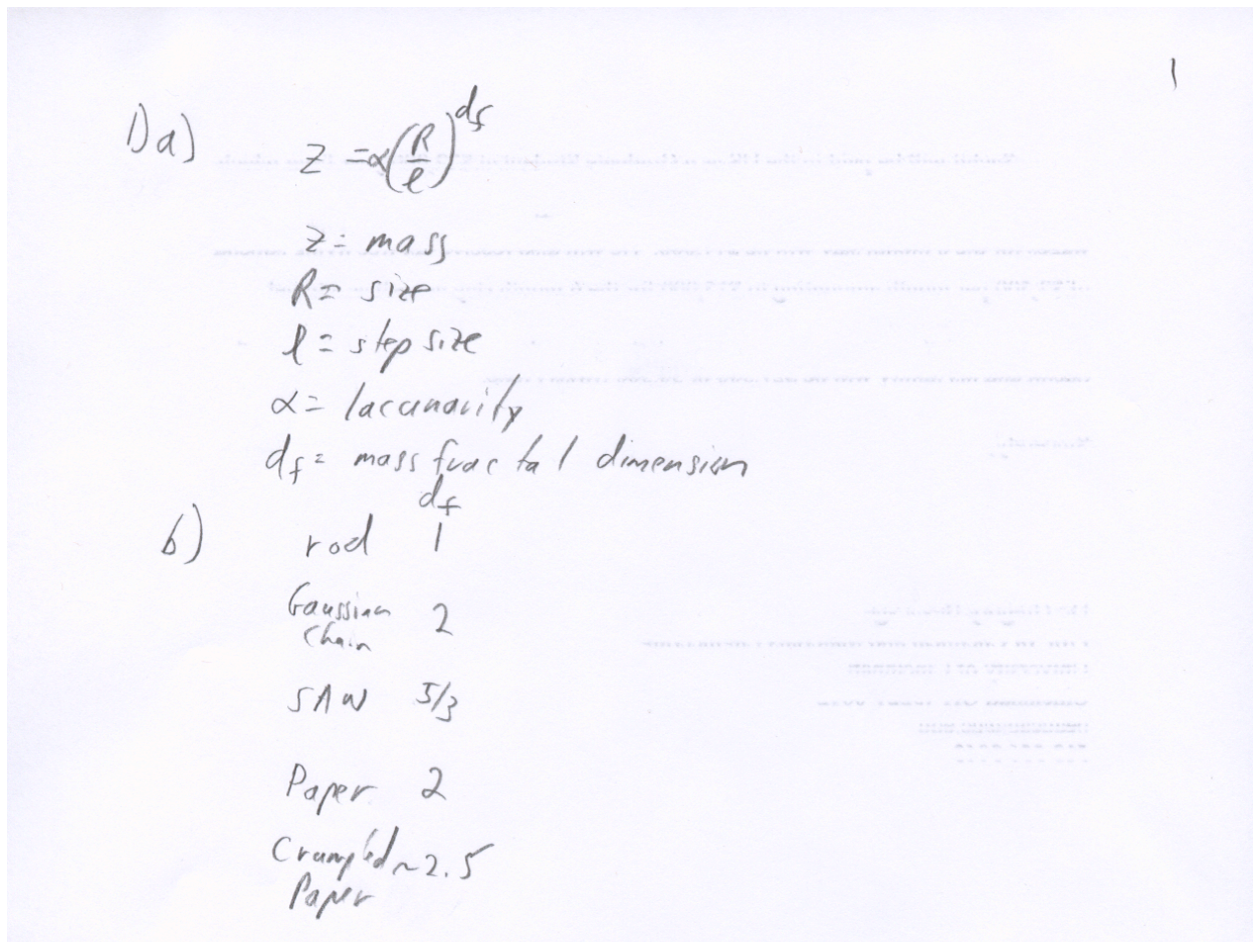 1
1) a) z = α(R/l)^df
z = mass
R = size
l = step size
α = lacunarity
df = mass fractal dimension
df
b) rod 1
Gaussian
Chain 2
SAW 5/3
Paper 2
Crumpled ~2.5
Paper